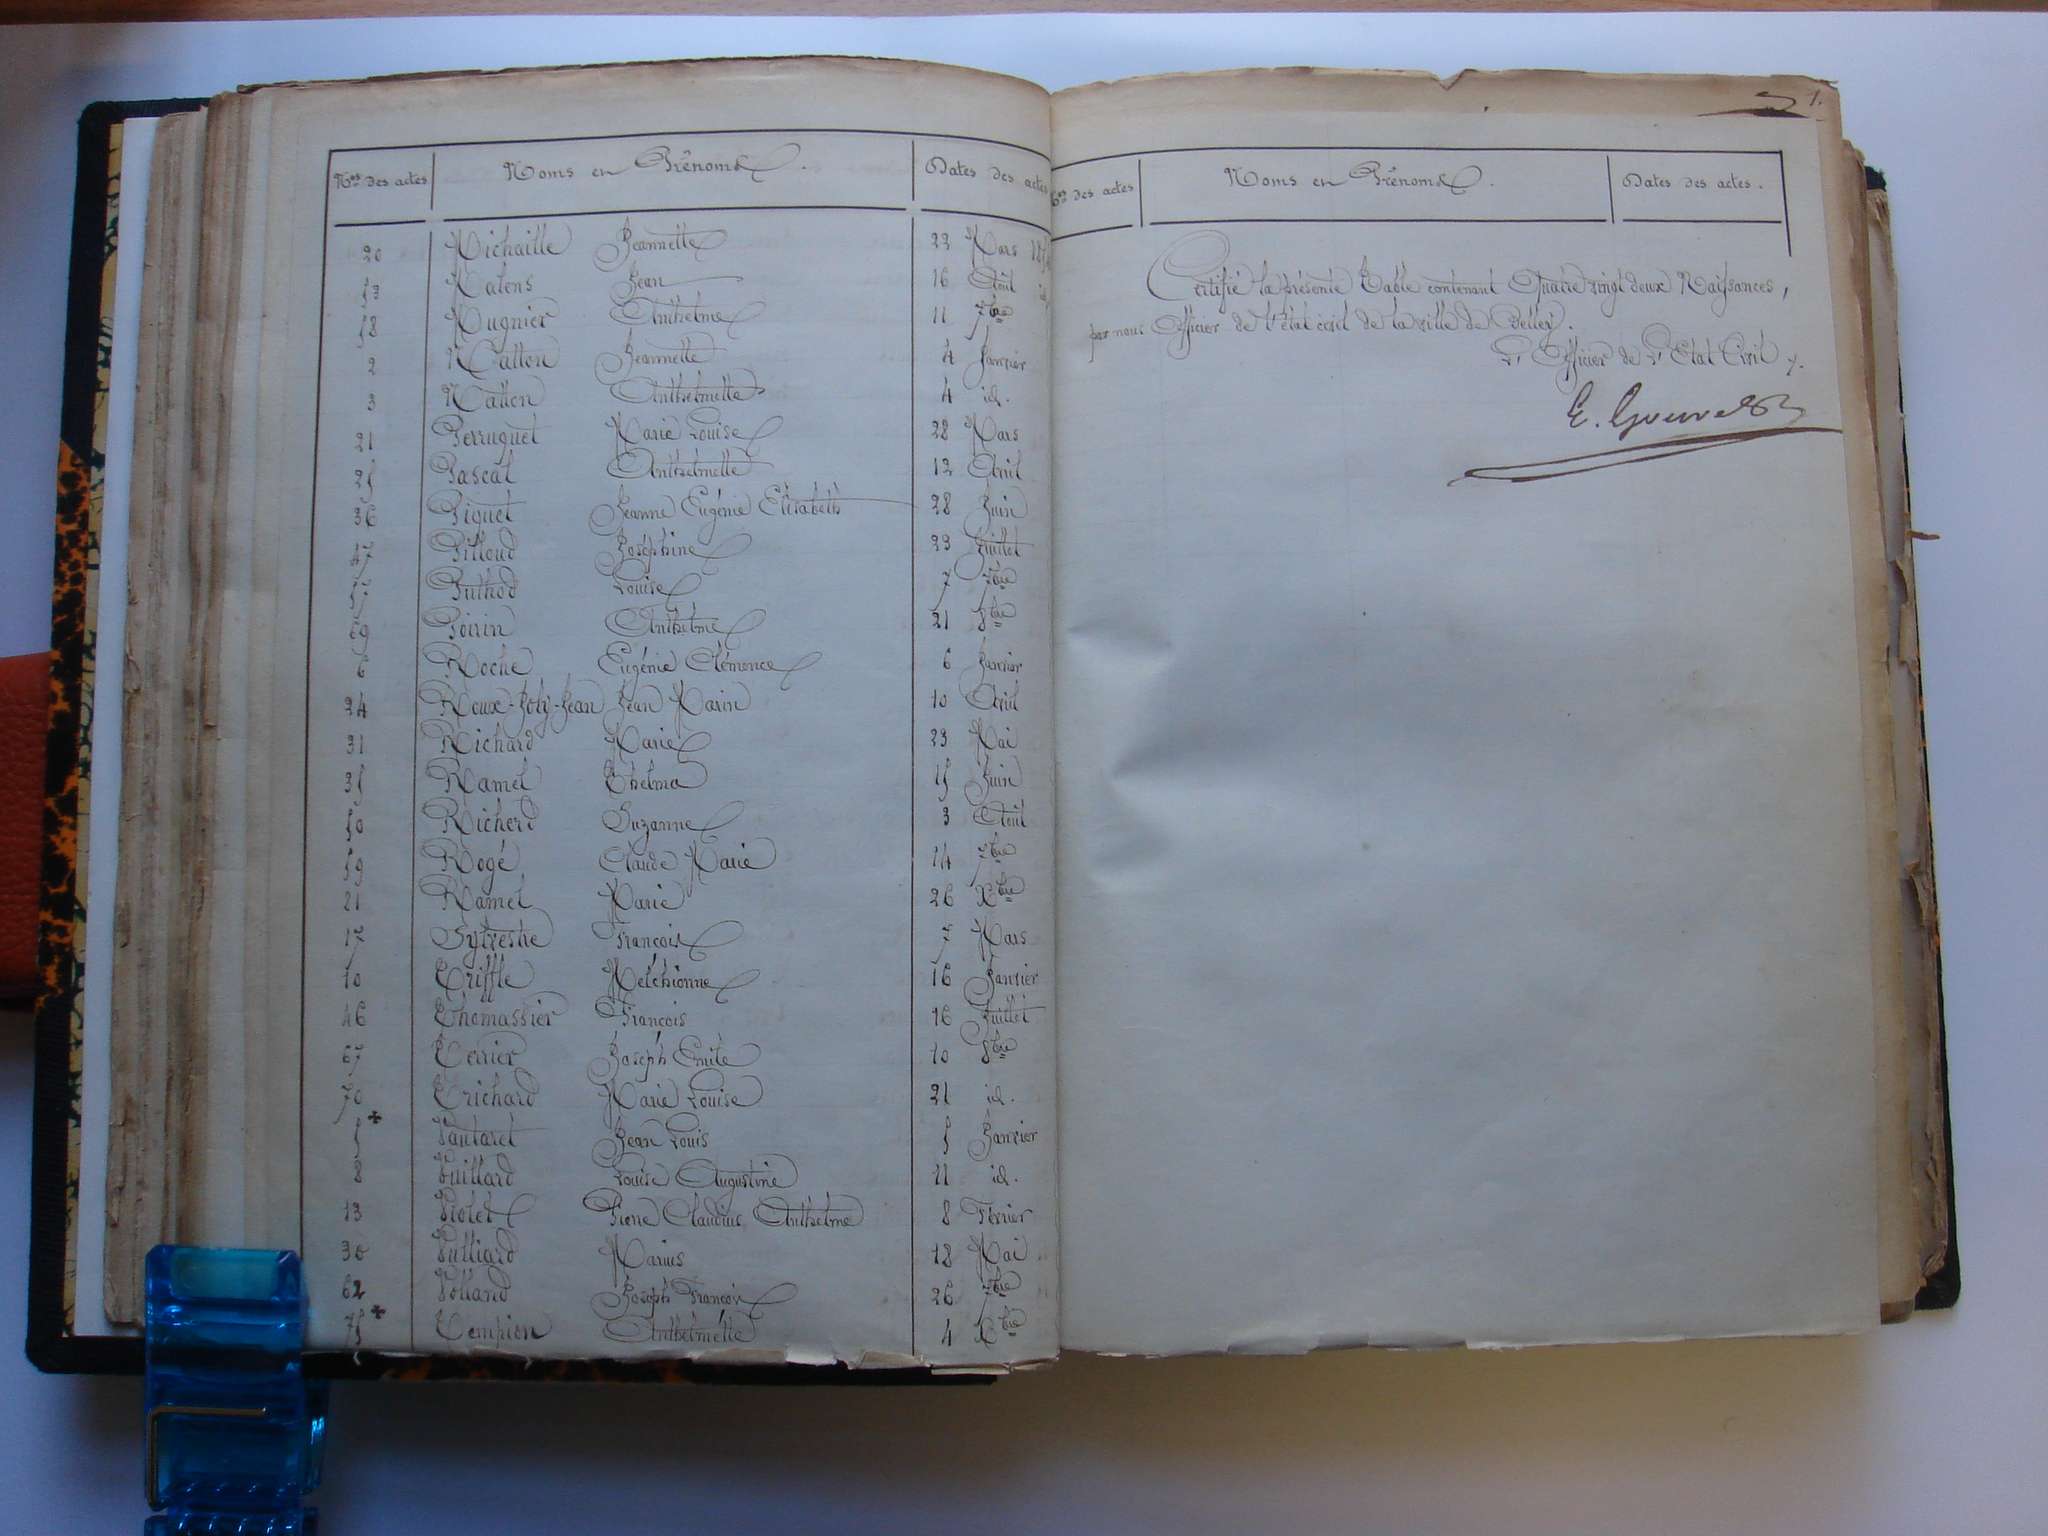 Nos des actes Noms et Prénoms. Dates des actes
20 Michaille Jeannette 22 Mars
53 Matens Jean 16 Août id
58 Mugnier Anthelme 11 7bre
2 Natton Jeannette 4 Janvier
3 Natton Anthelmette 4 id.
21 Perruquet Marie Louise 28 Mars
25 Pascal Anthelmette 12 Avril
36 Piquet Jeanne Eugénie Elisabeth 28 Juin
47 Pilloud Joséphine 23 Juillet
57 Puthod Louise 7 7bre
69 Poirin Anthelme 21 8bre
6 Roche Eugénie Clémence 6 Janvier
24 Roux-Joly-Jean Jean Marin 10 Avril
31 Richard Marie 23 Mai
35 Ramel Thelma 15 Juin
50 Richerd Suzanne 3 Août
59 Rogé Claude Marie 14 7bre
21 Ramel Marie 26 Xbre
17 Sylvestre François 7 Mars
10 Triffle Melchionne 16 Janvier
46 Thomassier François 16 Juillet
67 Terrier Joseph Emile 10 8bre
70 Trichard Marie Louise 21 id.
5 Vautaret Jean Louis 5 Janvier
8 Vuillard Louise Augustine 11 id.
13 Violet Pierre Claudius Anthelme 8 Février
30 Vulliard Marius 18 Mai
62 Volland Joseph François 26 7bre
75 Tempion Anthelmette 4 Xbre
1.
Nos des actes Noms et Prénoms. Dates des actes.
Certifié la présente Table contenant Quatre vingt deux Naissances,
par nous Officier de l'état civil de la ville de Belley.
L'Officier de L'Etat Civil